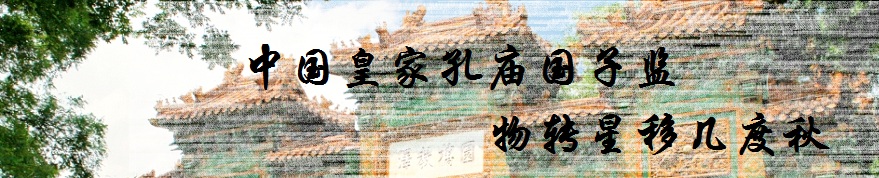 中国皇家孔庙国子监
物转星移几度秋
圜橋教澤